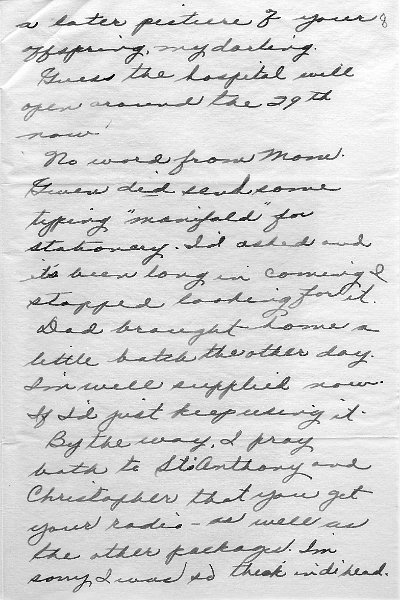 a later picture of your 8
offspring, my darling.
Guess the hospital will
open around the 29th
now.
No word from Mom.
Gwen did send some
typing "manifold" for
stationary. I'd asked and
it's been long in coming I
stopped looking for it.
Dad brought home a
little batch the other day.
I'm well supplied now.
If I'd just keep using it.
By the way, I pray
both to St. Anthony and
Christopher that you get
your radio - as well as
the other package. I'm
sorry I was so thick in di head.